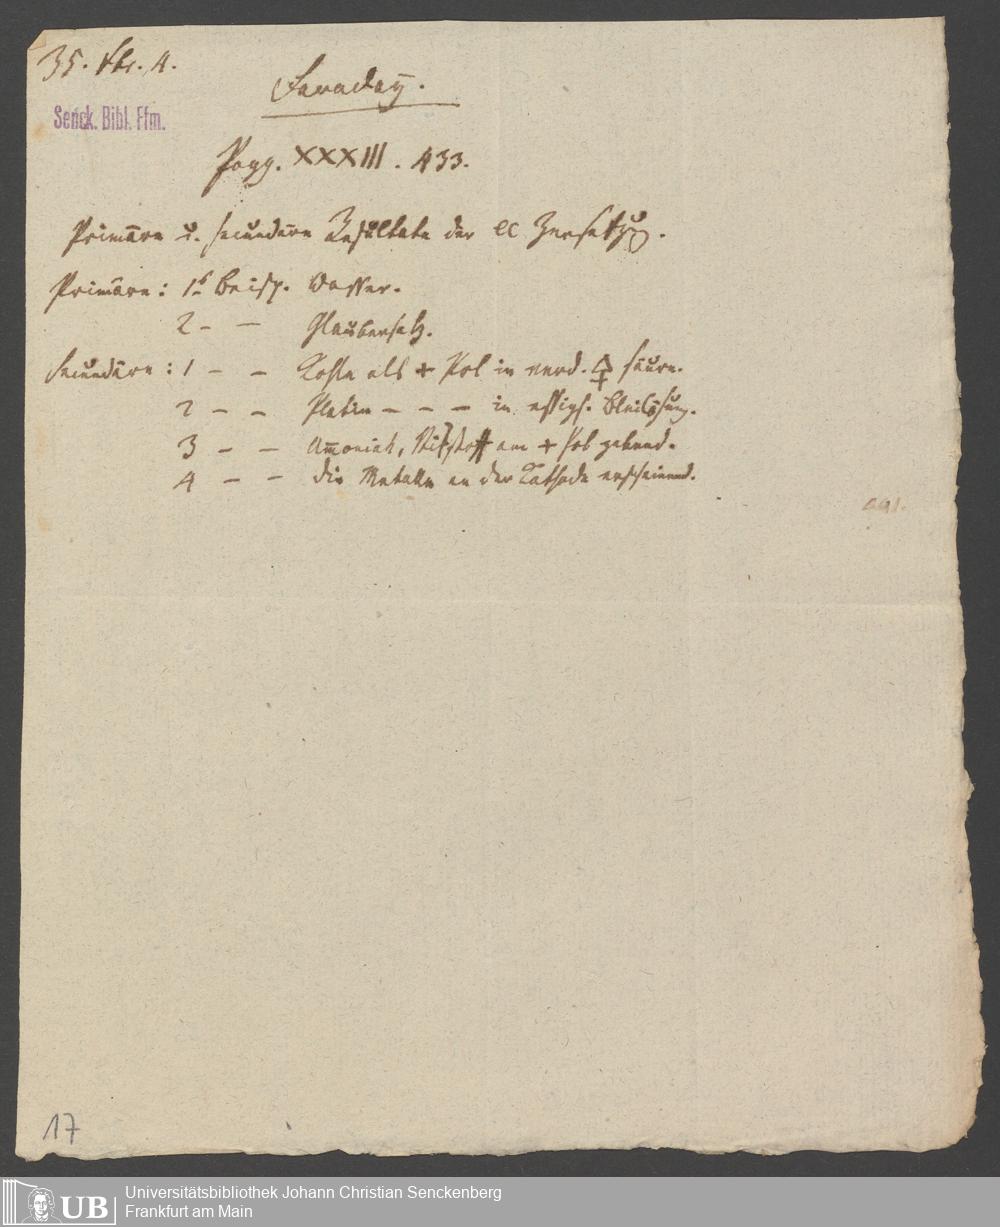 35. Fbr. 4.
Faraday.
Senck. Bibl. Ffm.
Pogg. XXXIII. 433.
Primäre u. secundäre Resultate der Zersetzung.
Primäre: 1s Beisp. Wasser.
2 - - Glaubersalz.
Secundäre: 1 - - Kohle als + Pol in verd. säure.
2 - - Platin - - - in essigs. Bleilösung.
3 - - Am̅oniak, Stikstoff am + Pol gebend.
4 - - die Metalle an der Kathode erscheinend.
17
UB
Universitätsbibliothek Johann Christian Senckenberg
Frankfurt am Main